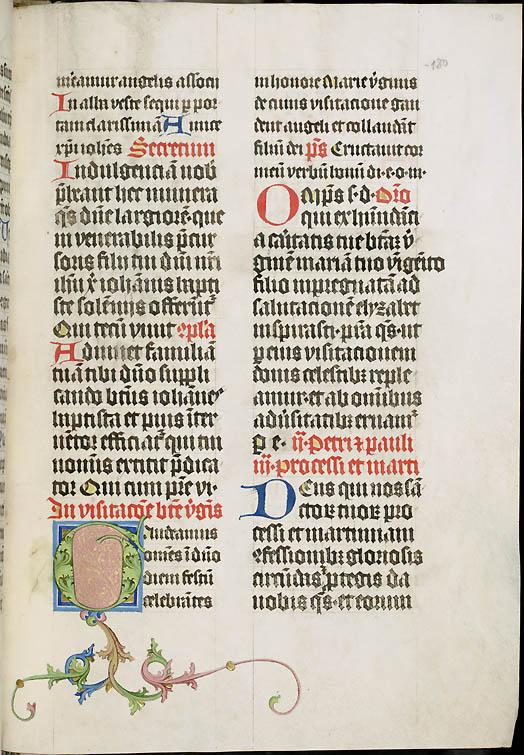 180
mereamur angelis associ
In alba veste sequi p por
tam clarissimā Amice
xp̄i ioh̄es Secretum
Indulgenciā nob̄
p̄beant hec munera
qs̄ dn̄e largiorē· que
in venerabilis p̄cur
soris filii tui dn̄i nr̄i
ih̄u xp̄ iohānis bapti
ste solēniis offerunt᷑
Qui tecū viuit 9pl̄a
Adiuuet familiā
tuā tibi dn̄o suppli
cando btūs iohānes
baptista et pius īter
uētor efficiat᷑ qui tui
nominis extitit p̄dica
tor Qui tecum p̄ce vi·
In visitacōe btē v̓gīs
Gaudeamus
omēs ī dn̄o
diem festū
celebrātes
in honore Marie v̓ginis
de cuius visitacione gau
dent angeli et collaudāt
filiū dei p̄s Eructauit cor
meū verbū bonū di·e·o·m·
Om̄ps s·d· Or̄o
qui ex habundāci
a caritatis tue btāꝫ v̓
ginem mariam tuo v̓genito
filio inpregnatā ad
salutacionē elyzabet
inspirasti· p̄sta qs̄· ut
per eius visitacionem
donis celestibꝫ reple
amur· et ab omnibus
aduersitatibꝫ eruamur᷑
p e· ij· Petri ⁊ pauli
iij· processi et marti
Deus qui nos sā
ctoꝝ tuoꝝ pro
cessi et martiniani
9fessionibꝫ gloriosis
circūdas ⁊ ptegis da
nobis qs̄· et eorum